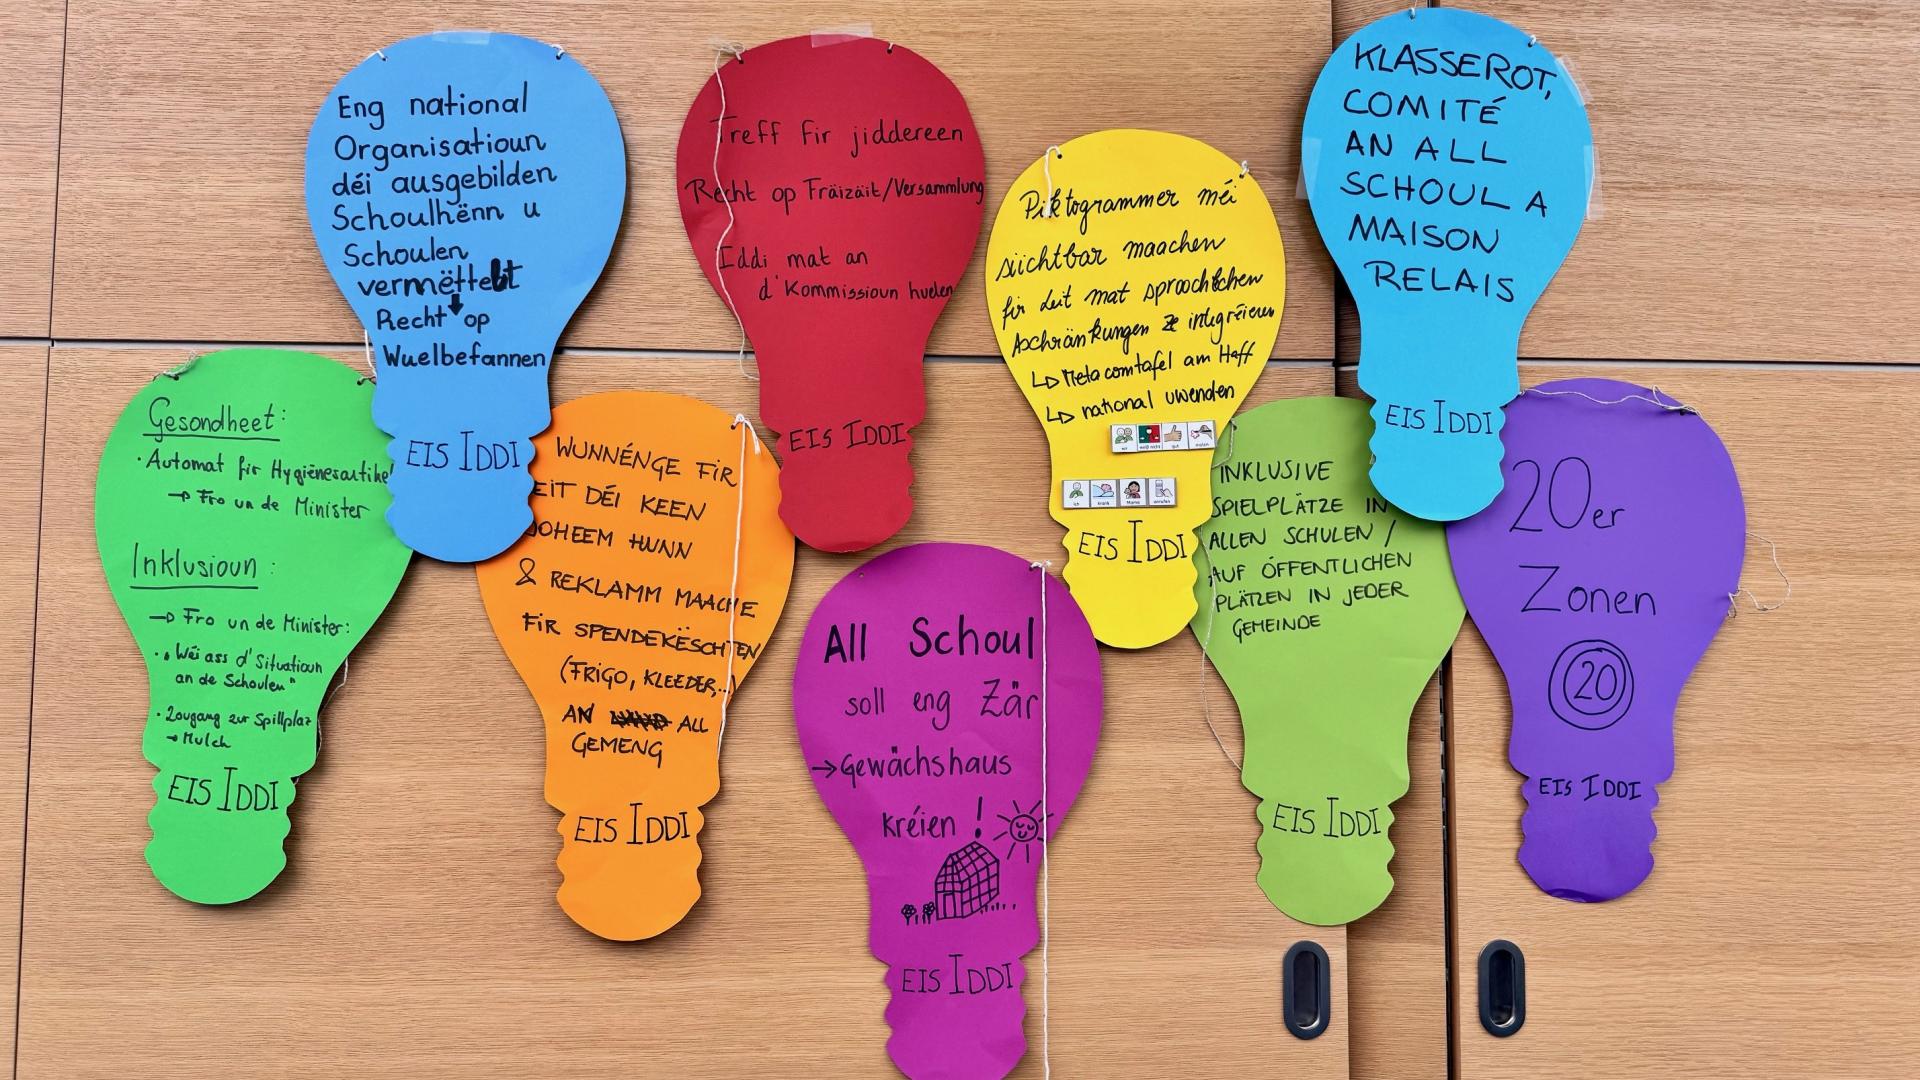 Eng national
Organisatioun
déi ausgebilden
Schoulhënn u
Schoulen
vermëttelt
Recht op
Wuelbefannen
EIS IDDI
Treff fir jiddereen
Recht op Fräizäit/Versammlung
Iddi mat an
d'Kommissioun huelen
EIS IDDI
Piktogrammer méi
siichtbar maachen
fir Leit mat sproochlechen
Aschränkungen ze integréieren
↳ Metacomtafel am Haff
↳ national uwenden
EIS IDDI
KLASSEROT,
COMITÉ
AN ALL
SCHOUL A
MAISON
RELAIS
EIS IDDI
Gesondheet:
· Automat fir Hygiènesartikel
→ Fro un de Minister
Inklusioun :
→ Fro un de Minister:
· „Wéi ass d'Situatioun
an de Schoulen"
· Zougang zur Spillplaz
→ Mulch
EIS IDDI
WUNNÉNGE FIR
EIT DÉI KEEN
DOHEEM HUNN
& REKLAMM MAACHE
FIR SPENDEKËSCHTEN
(FRIGO, KLEEDER,...)
AN ALL
GEMENG
EIS IDDI
All Schoul
soll eng Zär
→ Gewächshaus
kréien !
EIS IDDI
INKLUSIVE
SPIELPLÄTZE IN
ALLEN SCHULEN /
AUF ÖFFENTLICHEN
PLÄTZEN IN JEDER
GEMEINDE
EIS IDDI
20er
Zonen
20
EIS IDDI